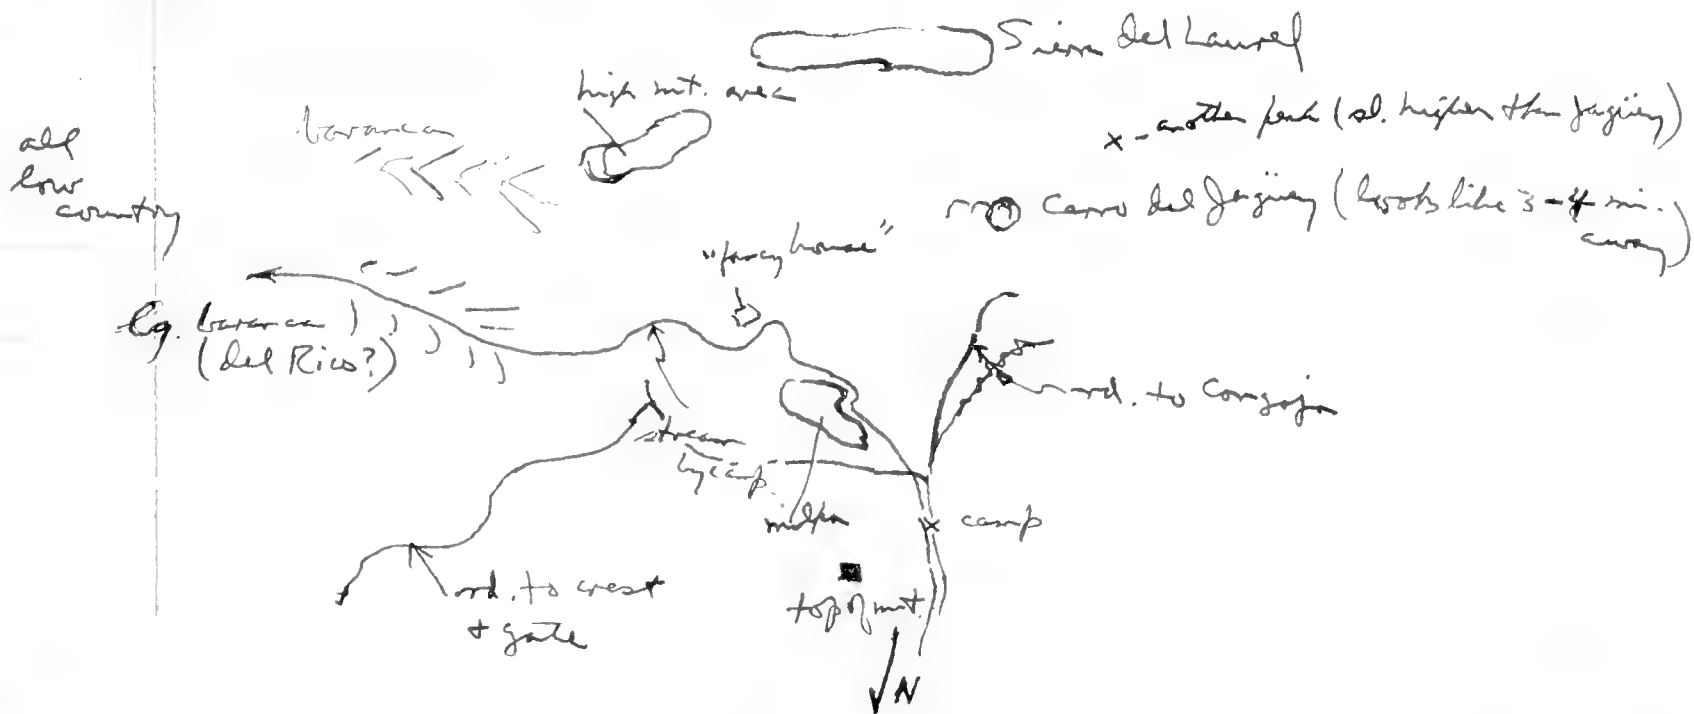 Sierra del Laurel
high mt. area
x - another peak (sl. higher than Jagüey)
baranca
all
low
country
Cerro del Jagüey (looks like 3-4 mi.
away)
"fancy house"
Lg. baranca
(del Rico?)
rd. to Congoja
stream
by camp
milpa
camp
rd. to crest
+ gate
top of mt.
N